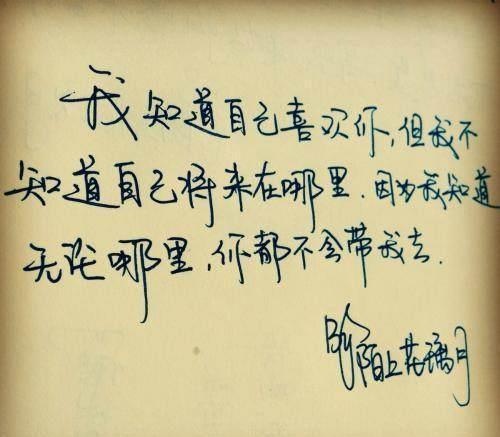 我知道自己喜欢你,但我不
知道自己将来在哪里.因为我知道
无论哪里,你都不会带我去.
By 陌上花满月